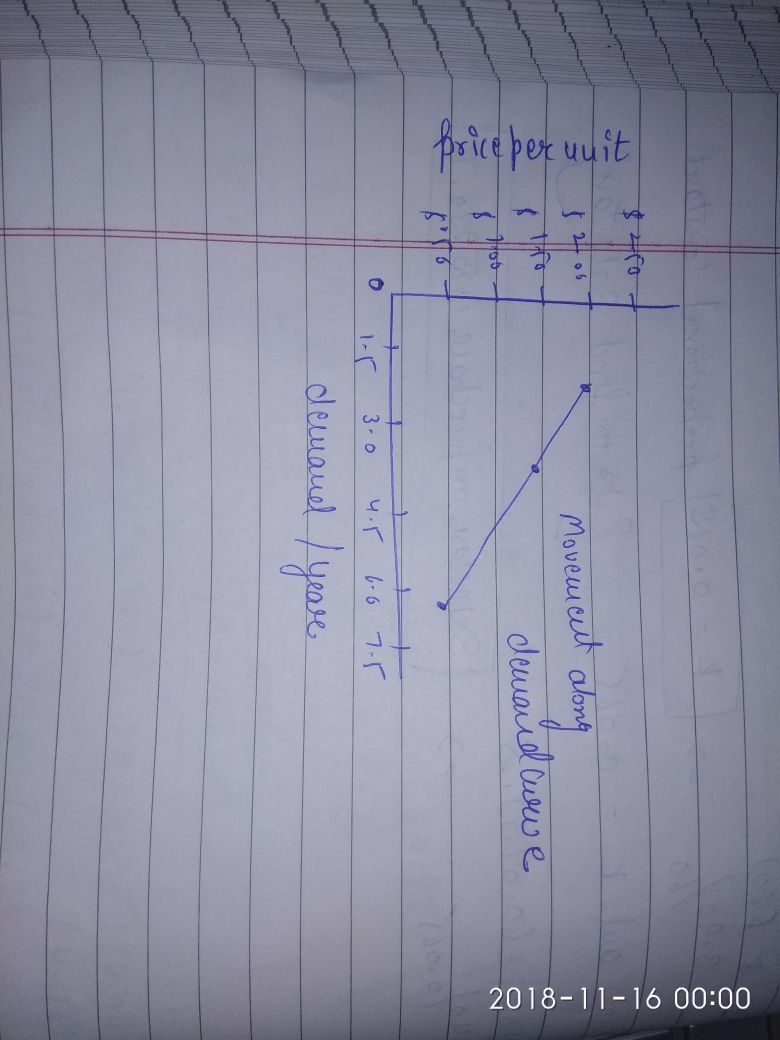 price per unit
$ 2.50
$ 2.00
$ 1.50
$ 1.00
$ 0.50
0
1.5
3.0
4.5
6.0
7.5
Movement along
demand curve
demand / year
2018-11-16 00:00